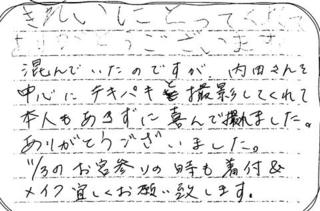 きれいにとってくださって
ありがとうございます
混んでいたのですが 内田さんを
中心にテキパキと撮影してくれて
本人もあきずに喜んで撮れました。
ありがとうございました。
11/3のお宮参りの時も着付&
メイク宜しくお願い致します。